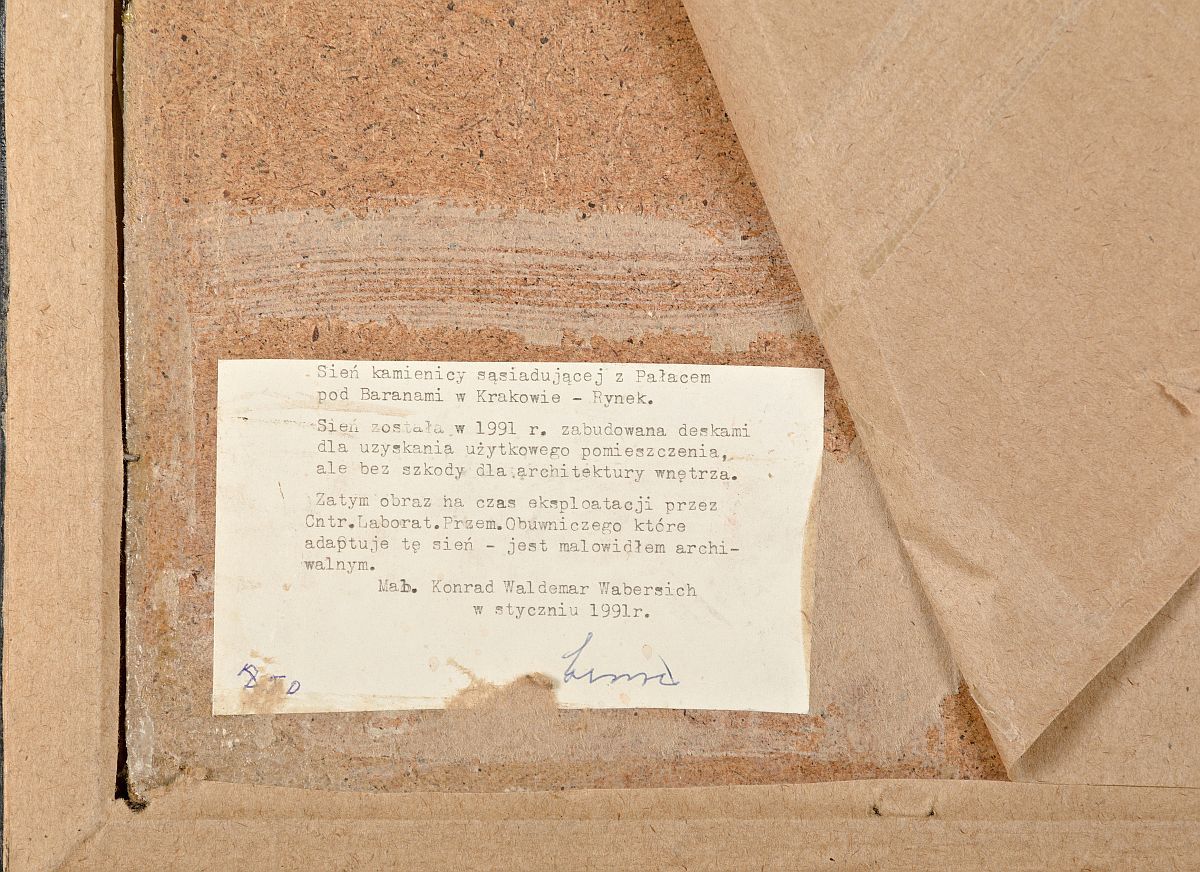 Sień kamienicy sąsiadującej z Pałacem
pod Baranami w Krakowie - Rynek.
Sień została w 1991 r. zabudowana deskami
dla uzyskania użytkowego pomieszczenia,
ale bez szkody dla architektury wnętrza.
Zatym obraz na czas eksploatacji przez
Cntr.Laborat.Przem.Obuwniczego które
adaptuje tę sień - jest malowidłem archi-
walnym.
Mal. Konrad Waldemar Wabersich
w styczniu 1991r.